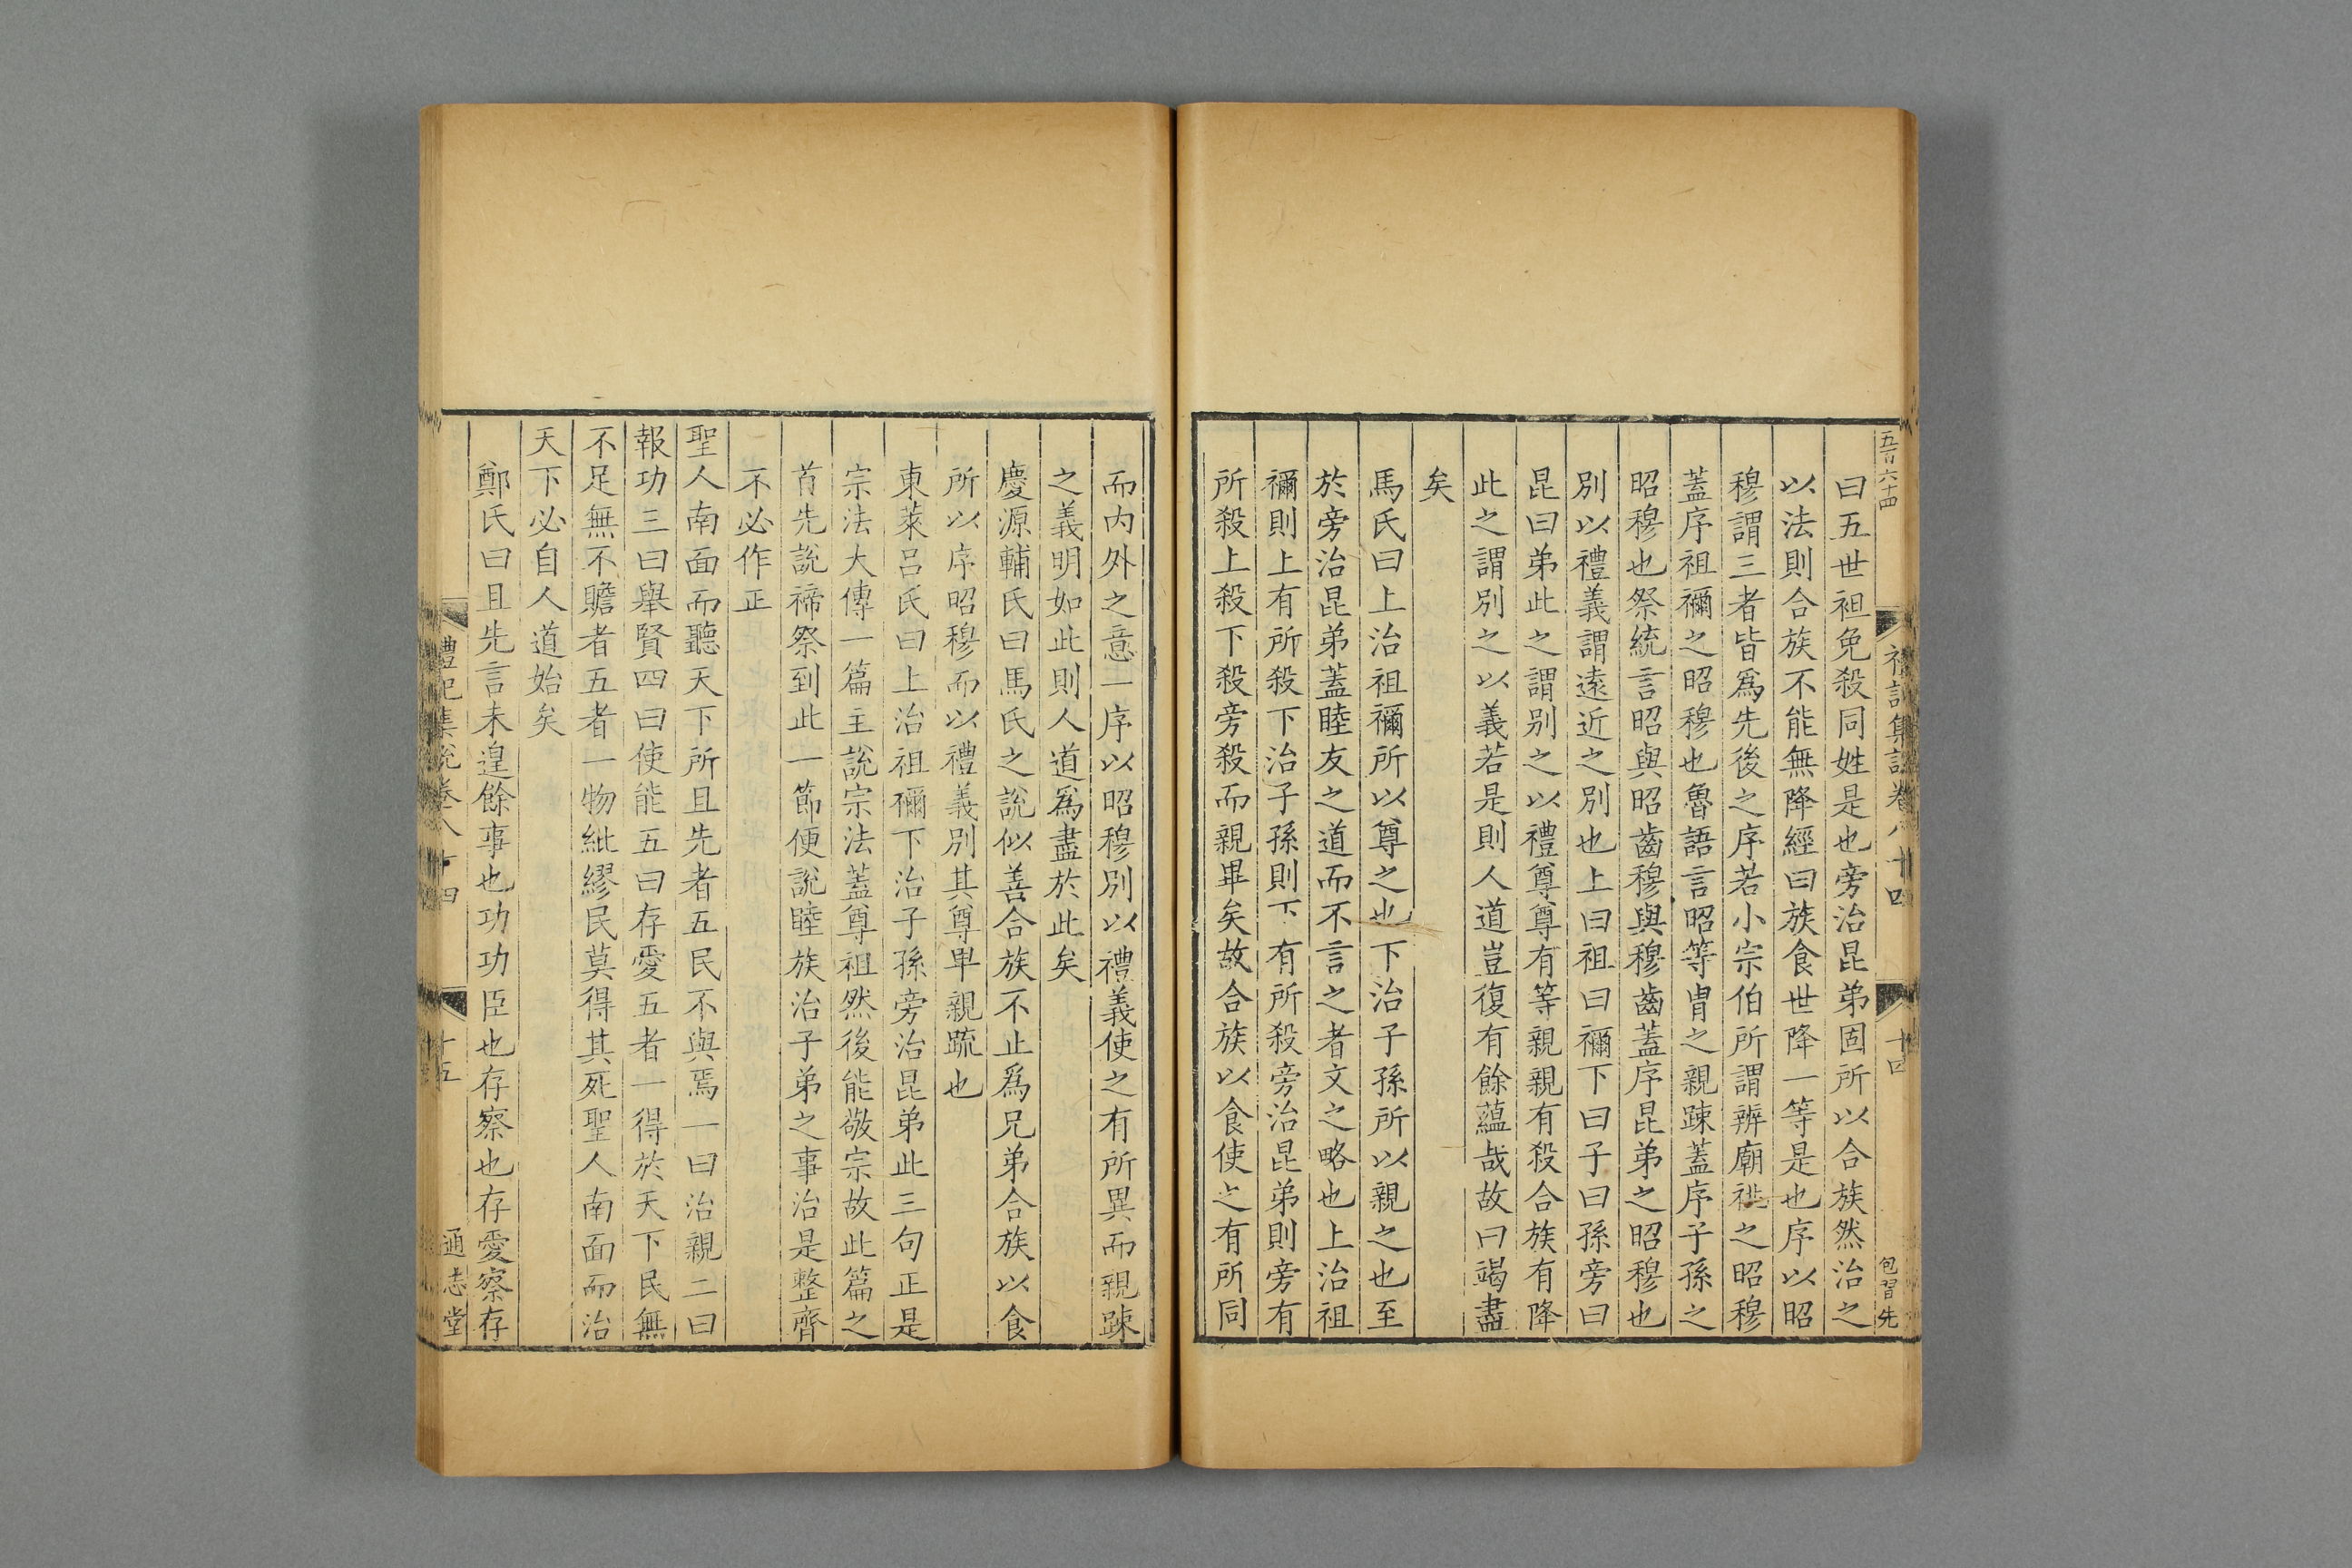 五百六十四
禮記集說卷八十四
十四
包習先
曰五世袒免殺同姓是也旁治昆弟固所以合族然治之
以法則合族不能無降經曰族食世降一等是也序以昭
穆謂三者皆爲先後之序若小宗伯所謂辨廟祧之昭穆
蓋序祖禰之昭穆也魯語言昭等胄之親踈蓋序子孫之
昭穆也祭統言昭與昭齒穆與穆齒蓋序昆弟之昭穆也
別以禮義謂遠近之別也上曰祖曰禰下曰子曰孫旁曰
昆曰弟此之謂別之以禮尊尊有等親親有殺合族有降
此之謂別之以義若是則人道豈復有餘蘊哉故曰竭盡
矣
馬氏曰上治祖禰所以尊之也下治子孫所以親之也至
於旁治昆弟蓋睦友之道而不言之者文之略也上治祖
禰則上有所殺下治子孫則下有所殺旁治昆弟則旁有
所殺上殺下殺旁殺而親畢矣故合族以食使之有所同
而內外之意一序以昭穆別以禮義使之有所異而親踈
之義明如此則人道爲盡於此矣
慶源輔氏曰馬氏之說似善合族不止爲兄弟合族以食
所以序昭穆而以禮義別其尊卑親疏也
東萊呂氏曰上治祖禰下治子孫旁治昆弟此三句正是
宗法大傳一篇主說宗法蓋尊祖然後能敬宗故此篇之
首先說禘祭到此一節便說睦族治子弟之事治是整齊
不必作正
聖人南面而聽天下所且先者五民不與焉一曰治親二曰
報功三曰舉賢四曰使能五曰存愛五者一得於天下民無
不足無不贍者五者一物紕繆民莫得其死聖人南面而治
天下必自人道始矣
鄭氏曰且先言未遑餘事也功功臣也存察也存愛察存
禮記集說卷八十四
十五
通志堂